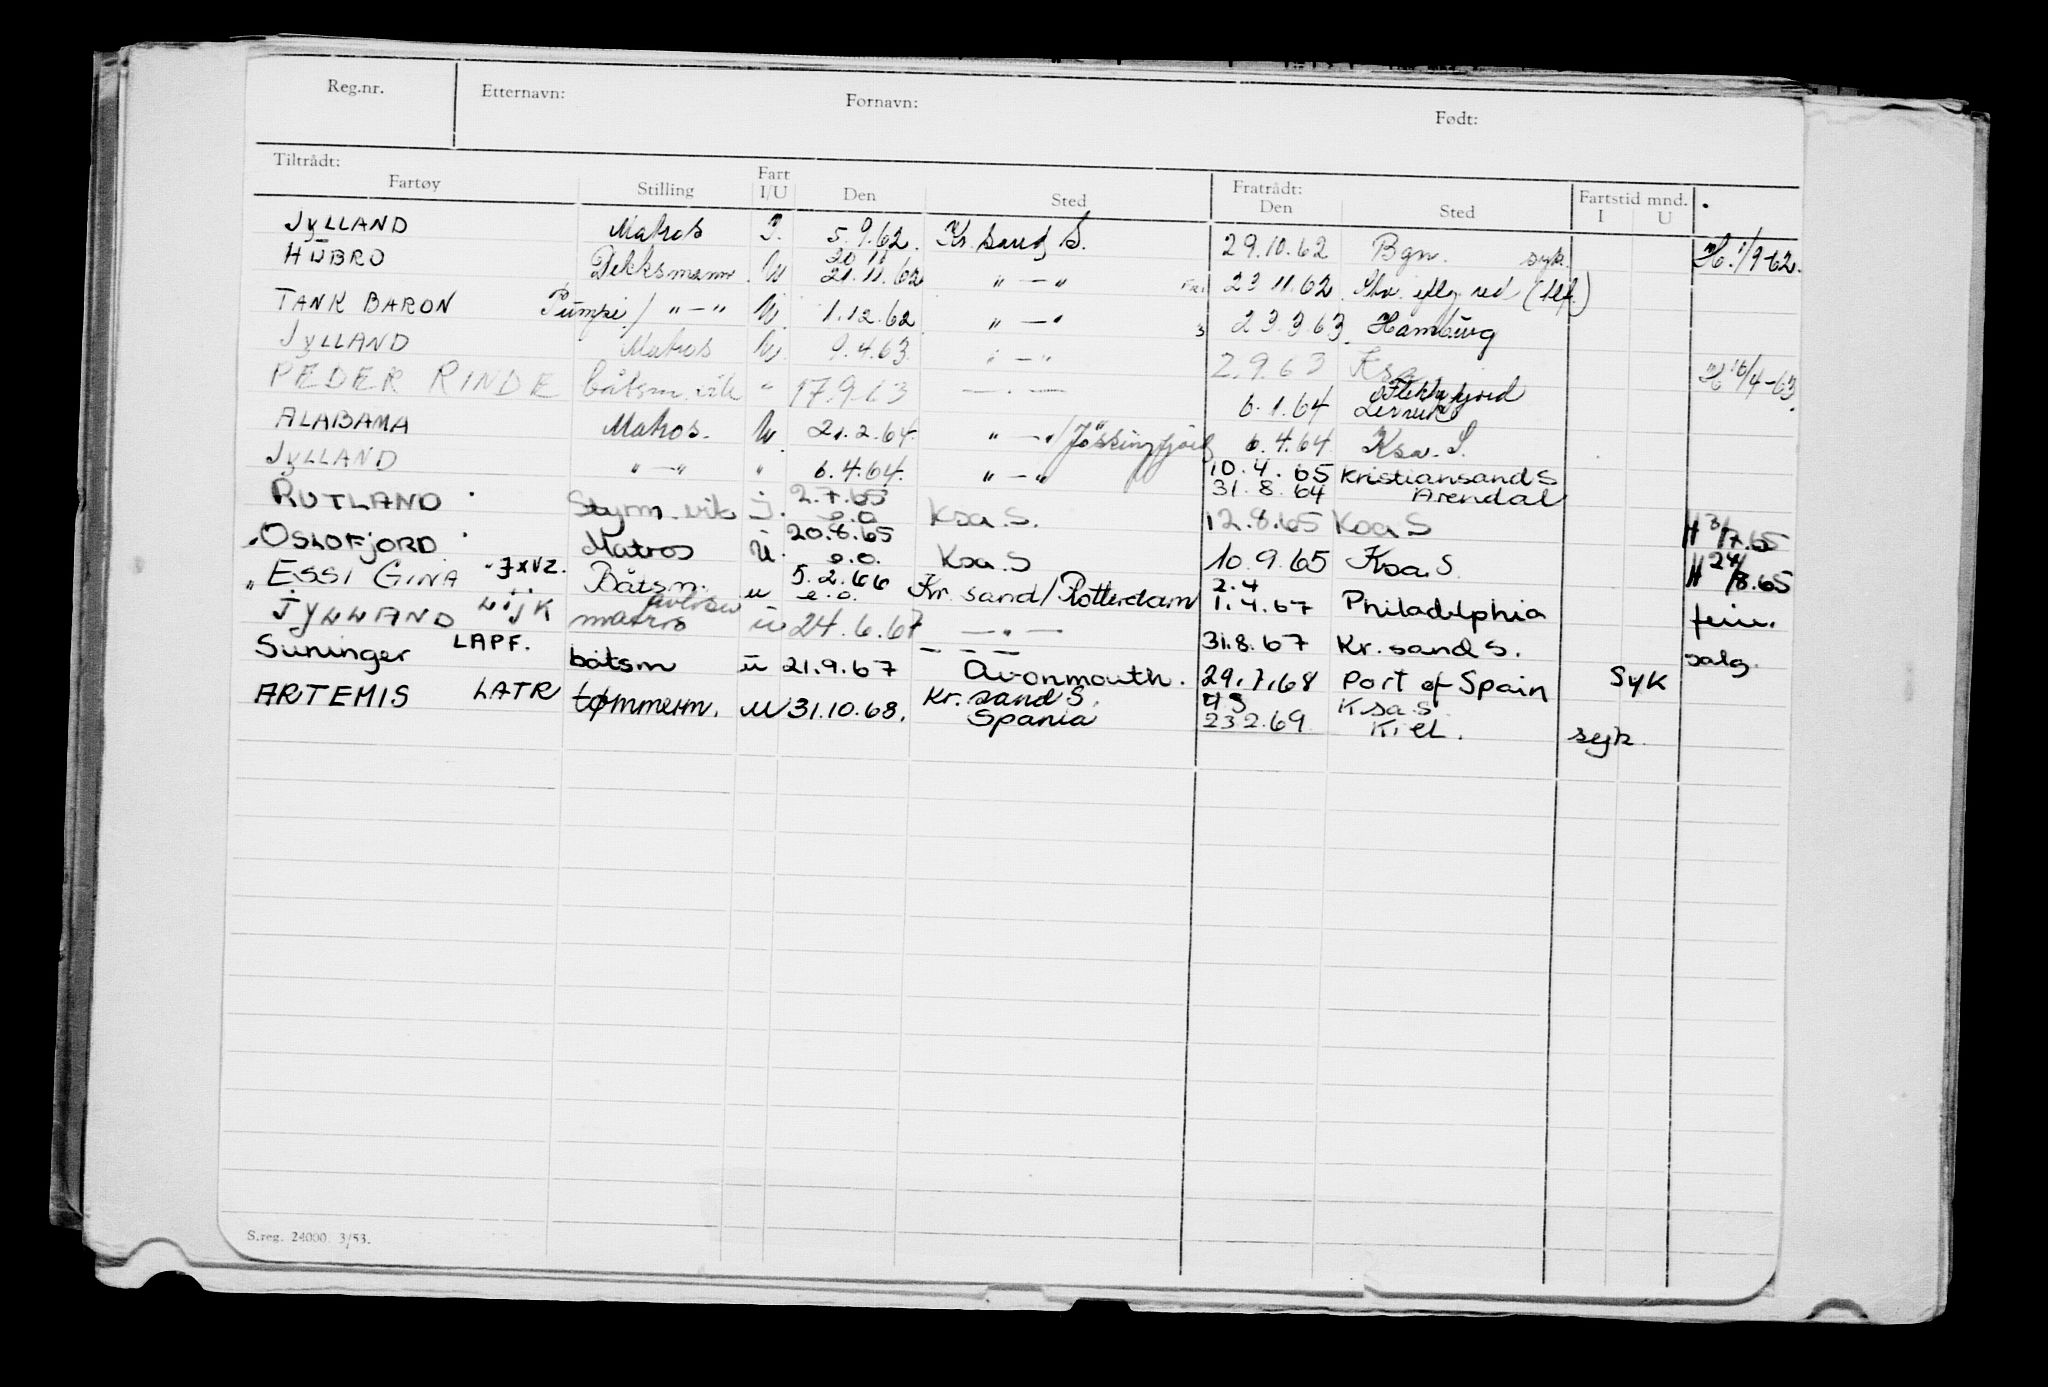 Reg.nr. Etternavn: Fornavn: Født:
Tiltrådt: Fratrådt:
Fartøy Stilling Fart I/U Den Sted Den Sted Fartstid mnd. I U
JYLLAND Matros I. 5.9.62. Kr. sand S. 29.10.62 Bgn. syk. H. 1/9-62.
HUBRO Dekksmann U. 20 11 21.11.62 " — " 23.11.62.
TANK BARON Pumpe/ " — " U. 1.12.62 " — " 23.3.63. Hamburg
JYLLAND Matros U. 9.4.63. " — " 2.9.63 Ksa H 16/4-63.
PEDER RINDE båtsm. vik " 17.9.63 — . — 6.1.64 Flekkefjord
ALABAMA Matros. U. 21.2.64. " — " / Jøssingfjord 6.4.64 Ksa. S.
JYLLAND " — " " 6.4.64. " — " 10.4.65 Kristiansand S
31.8.64 Arendal
RUTLAND Styrm. vik I. 2.7.65 e.o. Ksa. S. 12.8.65 Ksa S H 3/7.65
OSLOFJORD Matros U. 20.8.65 e.o. Ksa. S 10.9.65 Ksa. S. H 24/8.65
" ESSI GINA JXVZ. Båtsm. u 5.2.66 e.o. Kr. sand/Rotterdam 2.4 1.4.67 Philadelphia ferie.
JYLLAND LIJK matros u 24.6.67 — " — 31.8.67 Kr. sand S. salg.
Suninger LAPF. båtsm u 21.9.67 Avonmouth. 29.7.68 Port of Spain syk
ARTEMIS LATR tømmerm. u 31.10.68. Kr. sand S. Spania 4 3 Ksa S.
23 2.69 Kiel. syk.
S.reg. 24000. 3/53.